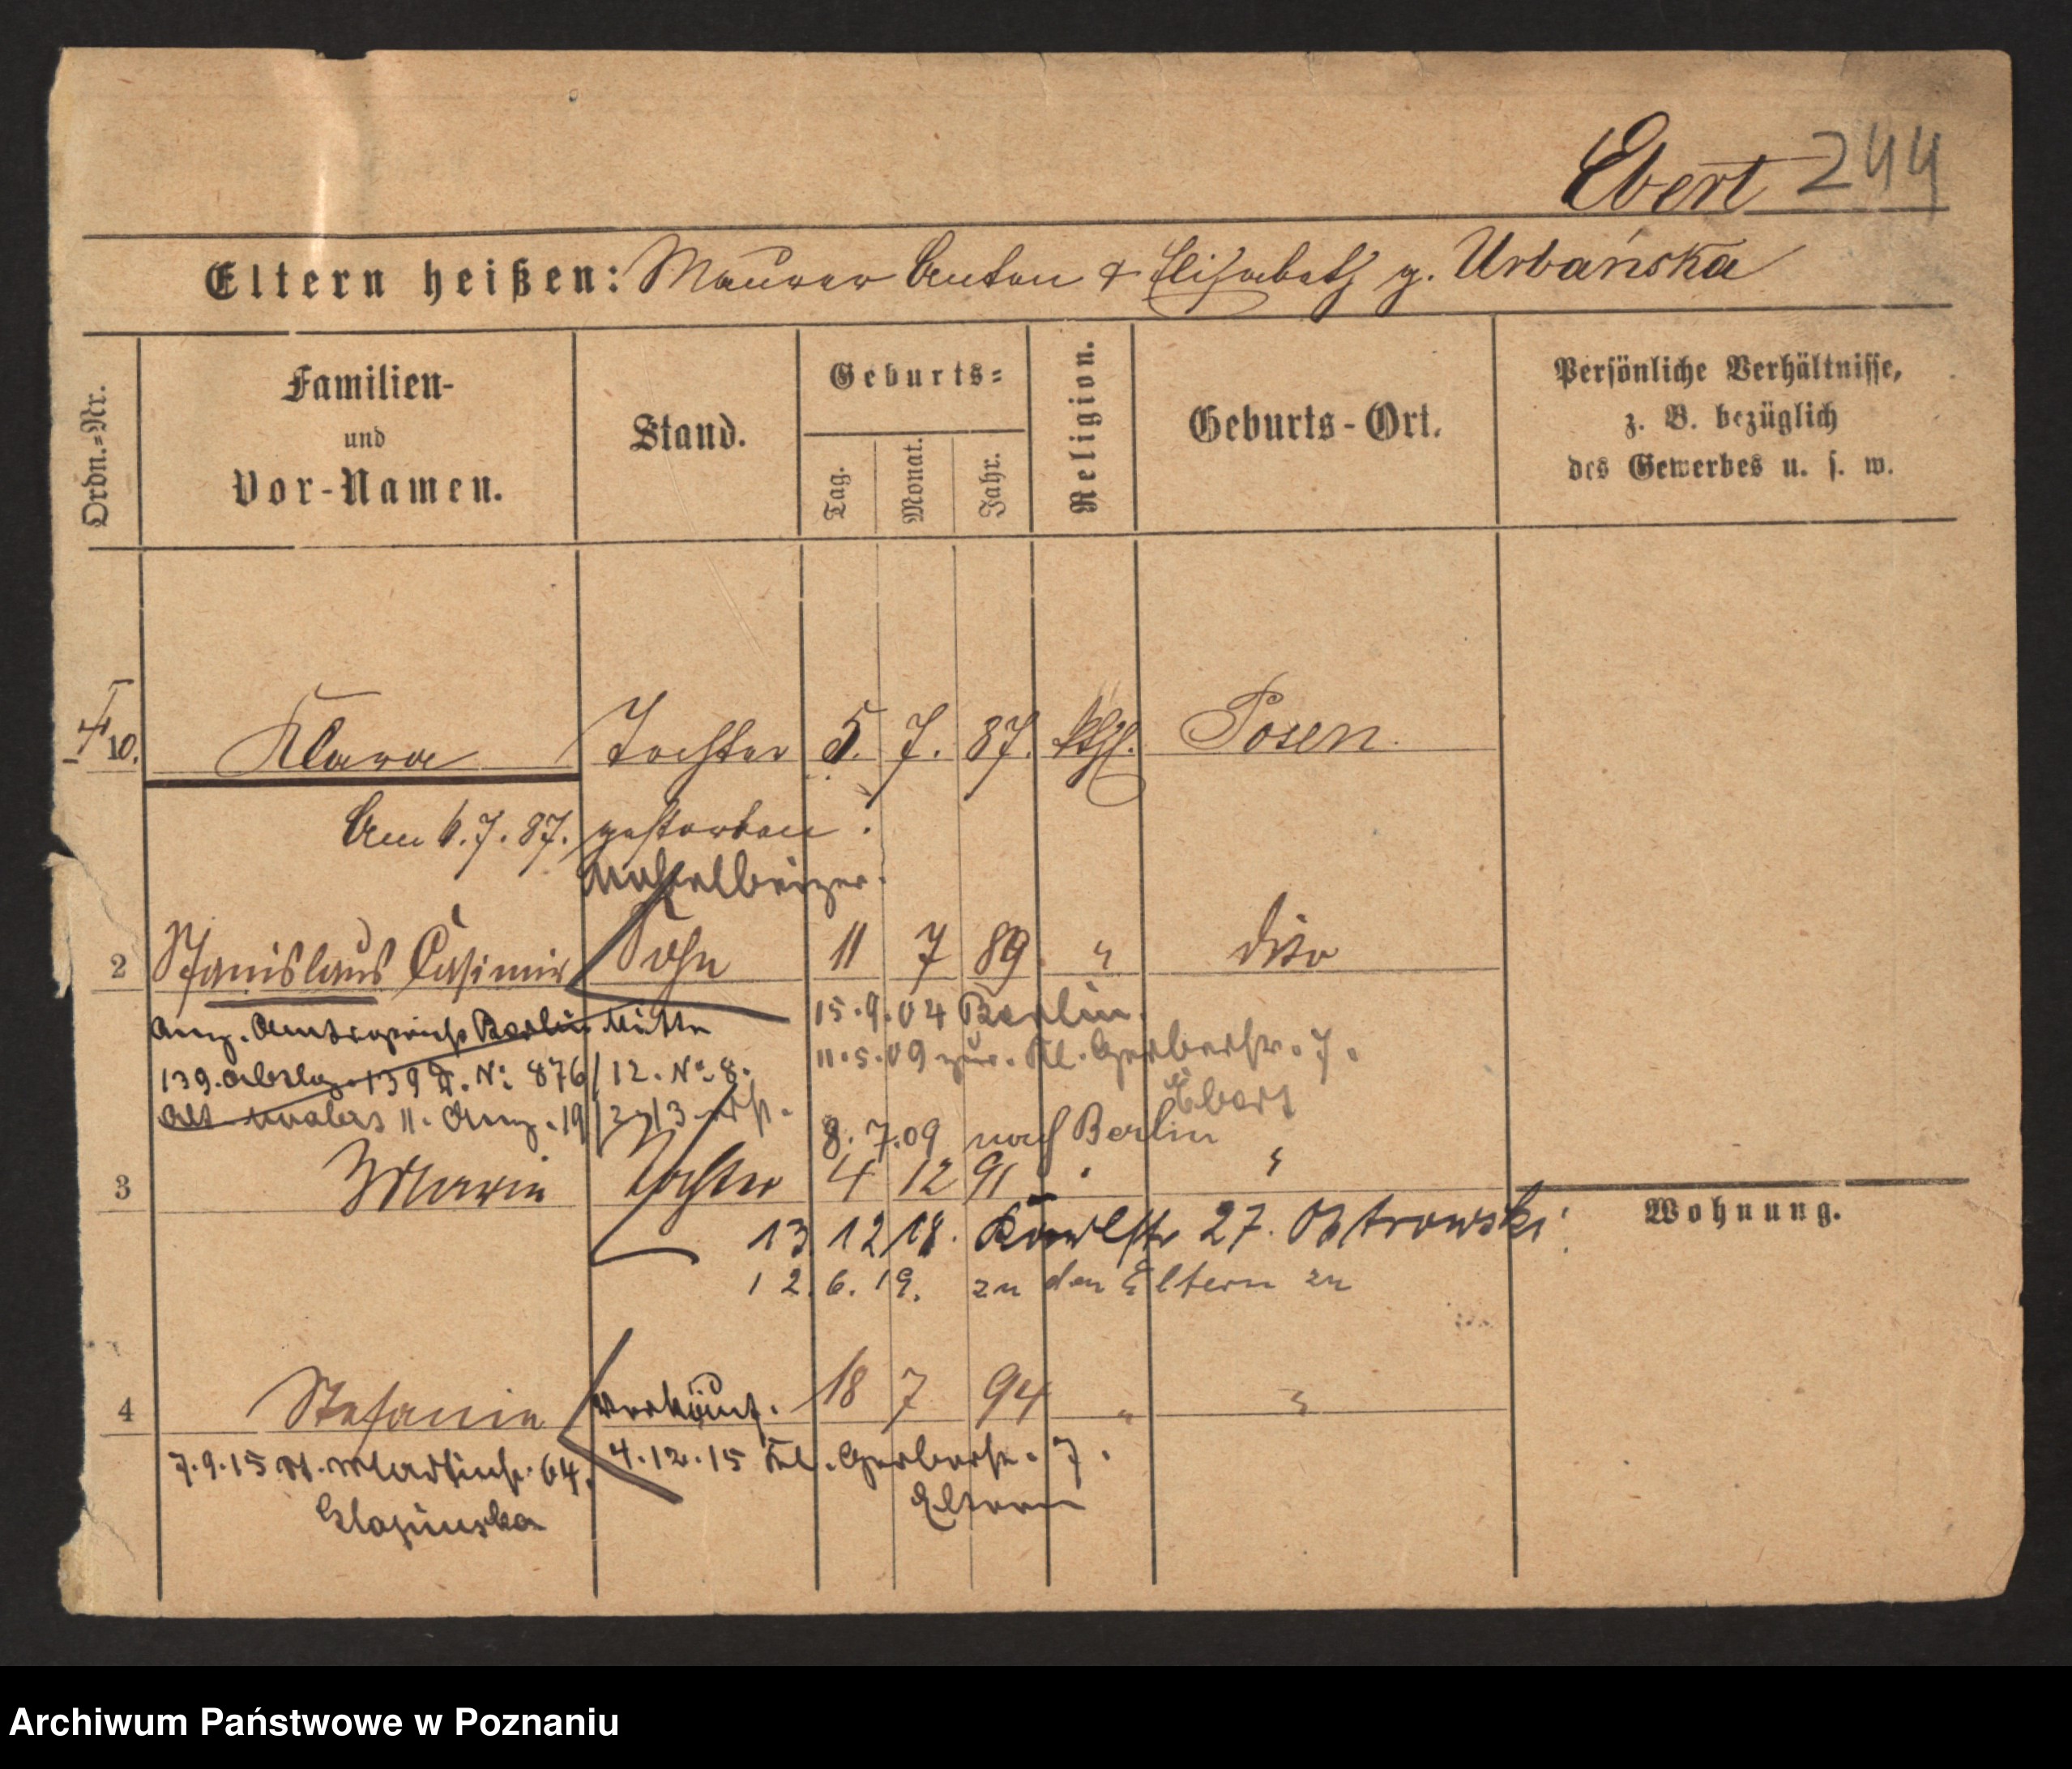 Ebert 244
Eltern heißen: Maurer Anton & Elisabeth g. Urbańska
Ordn.=Nr.
Familien-
und
Vor-Namen.
Stand.
Geburts=
Tag.
Monat.
Jahr.
Religion.
Geburts-Ort.
Persönliche Verhältnisse,
z. B. bezüglich
des Gewerbes u. s. w.
10. Klara Tochter 5. 7. 87. kthl. Posen
Am 6.7.87. gestorben.
2 Stanislaus Casimir Sohn 11 7 89 " dito
Anz. Amtsgericht Berlin Mitte
15.9.04 Berlin.
139. 139 D. No 876/12. No 8.
11.5.09 zur. Kl. Gerberstr. 7.
Ebert
11. Anz. 19/2 13
8.7.09 nach Berlin
3 Maria Tochter 4 12 91 " "
13 12 18. 27. Ostrowski
Wohnung.
12.6.19. zu den Eltern zu
4 Stefania Verkäuf. 18 7 94 " "
7.9.15 St. Martinstr. 64.
4.12.15 Kl. Gerberstr. 7.
Eltern
Archiwum Państwowe w Poznaniu